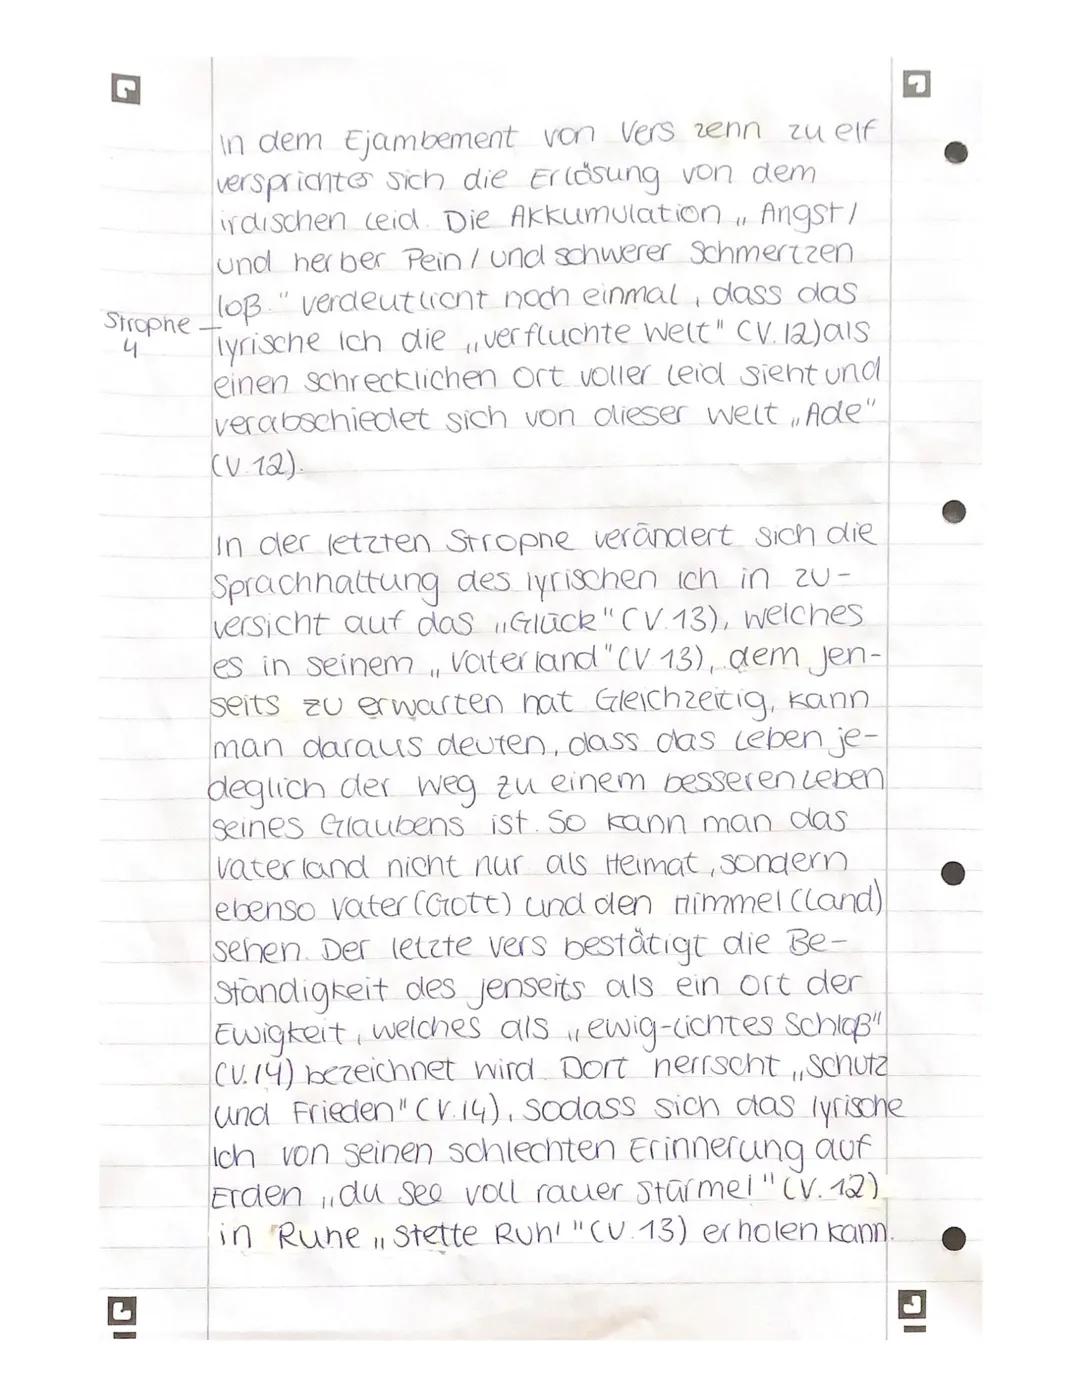 In dem Ejambement von Vers zehn zu elf
verspricht es sich die Erlösung von dem
irdischen Leid. Die Akkumulation „Angst /
und herber Pein / und schwerer Schmertzen
loß." verdeutlicht noch einmal, dass das
Strophe 4
lyrische Ich die „verfluchte Welt" (V. 12) als
einen schrecklichen Ort voller Leid sieht und
verabschiedet sich von dieser Welt „Ade"
(V. 12).
In der letzten Strophe verändert sich die
Sprachhaltung des lyrischen Ich in Zu-
versicht auf das „Glück" (V. 13), welches
es in seinem „Vaterland" (V 13), dem Jen-
seits zu erwarten hat Gleichzeitig, kann
man daraus deuten, dass das Leben je-
deglich der Weg zu einem besseren Leben
seines Glaubens ist. So kann man das
Vaterland nicht nur als Heimat, sondern
ebenso Vater (Gott) und den Himmel (Land)
sehen. Der letzte Vers bestätigt die Be-
ständigkeit des Jenseits als ein Ort der
Ewigkeit, welches als „ewig-lichtes Schloß"
(V. 14) bezeichnet wird. Dort herrscht „Schutz
und Frieden" (V. 14), sodass sich das lyrische
Ich von seinen schlechten Erinnerung auf
Erden „du See voll rauer Stürme!" (V. 12)
in Ruhe „stette Ruh'" (V. 13) erholen kann.